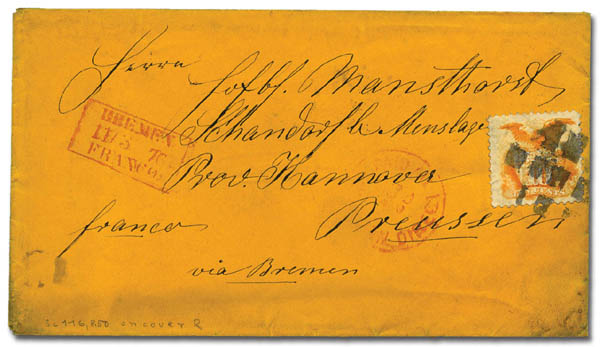 Herrn
Hofbs. Mansthorst
Schandorf b Menslage
Prov. Hannover
franco Preussen
via Bremen
BREMEN
FRANCO
Sc 116, 850 on cover R